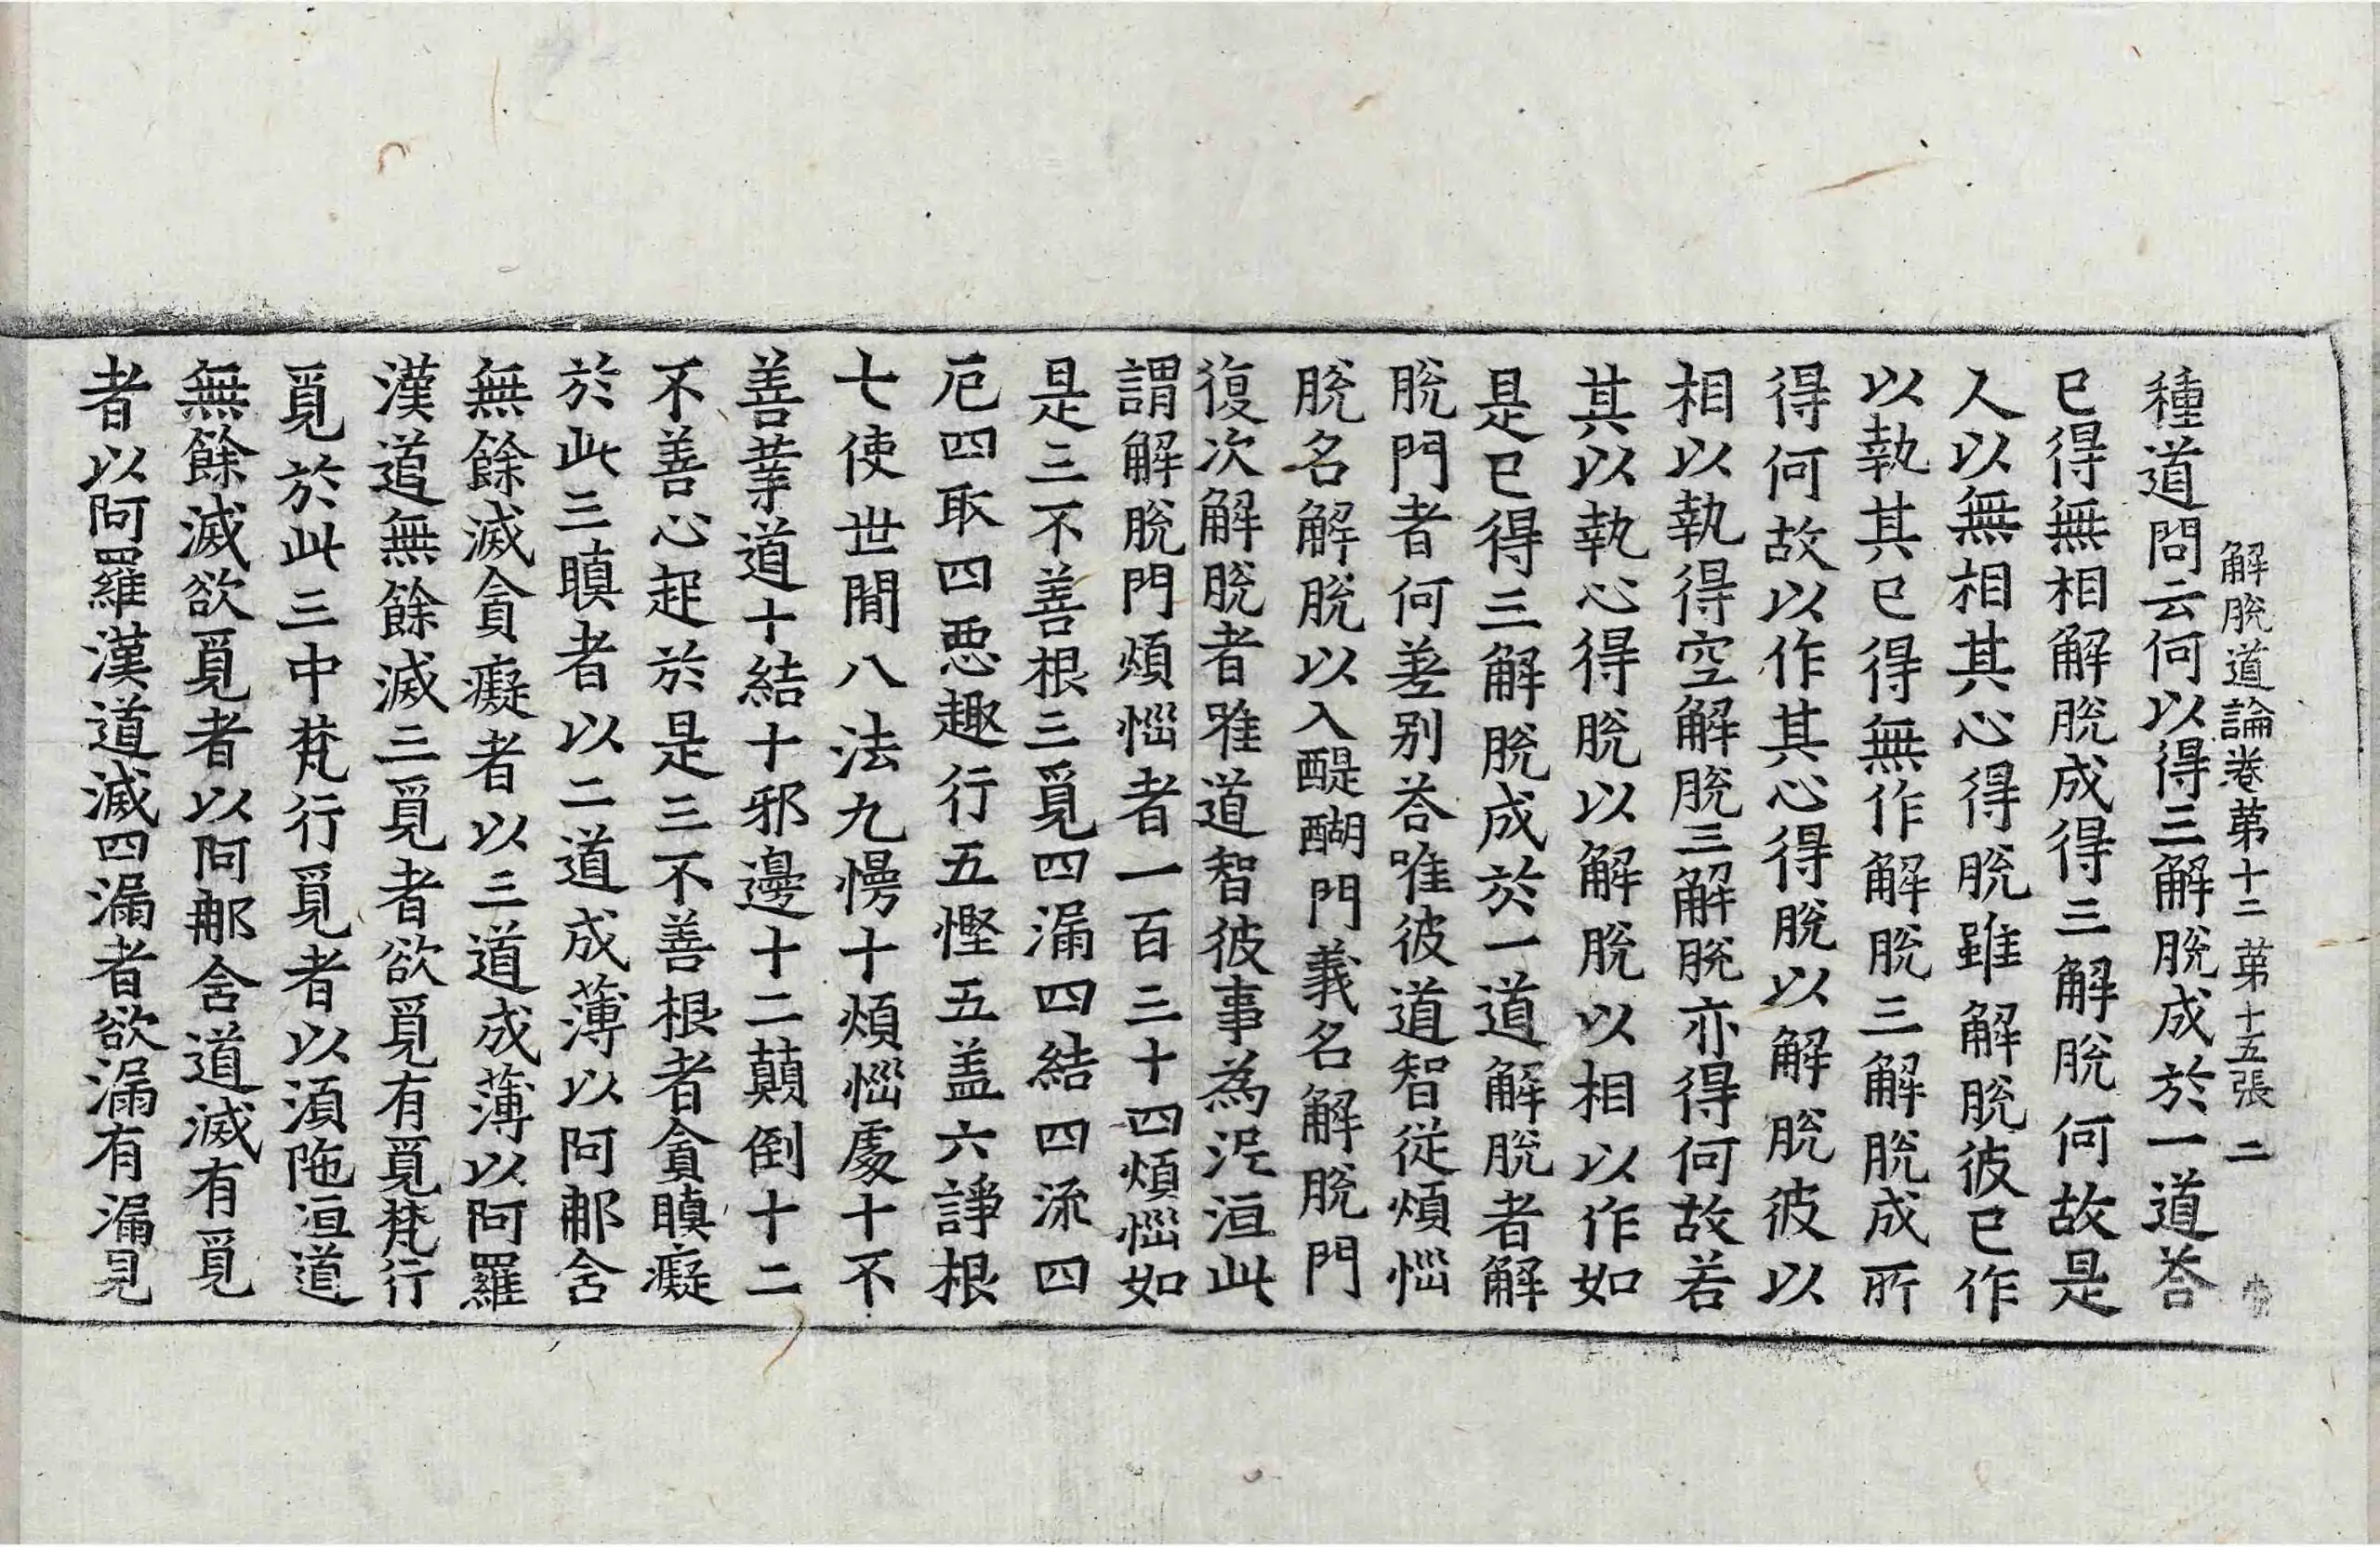 解脫道論卷第十二 第十五張 二
種道問云何以得三解脫成於一道荅
已得無相解脫成得三解脫何故是
人以無相其心得脫雖解脫彼已作
以執其已得無作解脫三解脫成所
得何故以作其心得脫以解脫彼以
相以執得空解脫三解脫亦得何故若
其以執心得脫以解脫以相以作如
是已得三解脫成於一道解脫者解
脫門者何差別荅唯彼道智從煩惱
脫名解脫以入醍醐門義名解脫門
復次解脫者唯道智彼事為泥洹此
謂解脫門煩惱者一百三十四煩惱如
是三不善根三覓四漏四結四流四
厄四取四惡趣行五慳五盖六諍根
七使世間八法九慢十煩惱處十不
善業道十結十邪邊十二顛倒十二
不善心起於是三不善根者貪瞋癡
於此三瞋者以二道成薄以阿那含
無餘滅貪癡者以三道成薄以阿羅
漢道無餘滅三覓者欲覓有覓梵行
覓於此三中梵行覓者以須陁洹道
無餘滅欲覓者以阿那含道滅有覓
者以阿羅漢道滅四漏者欲漏有漏見